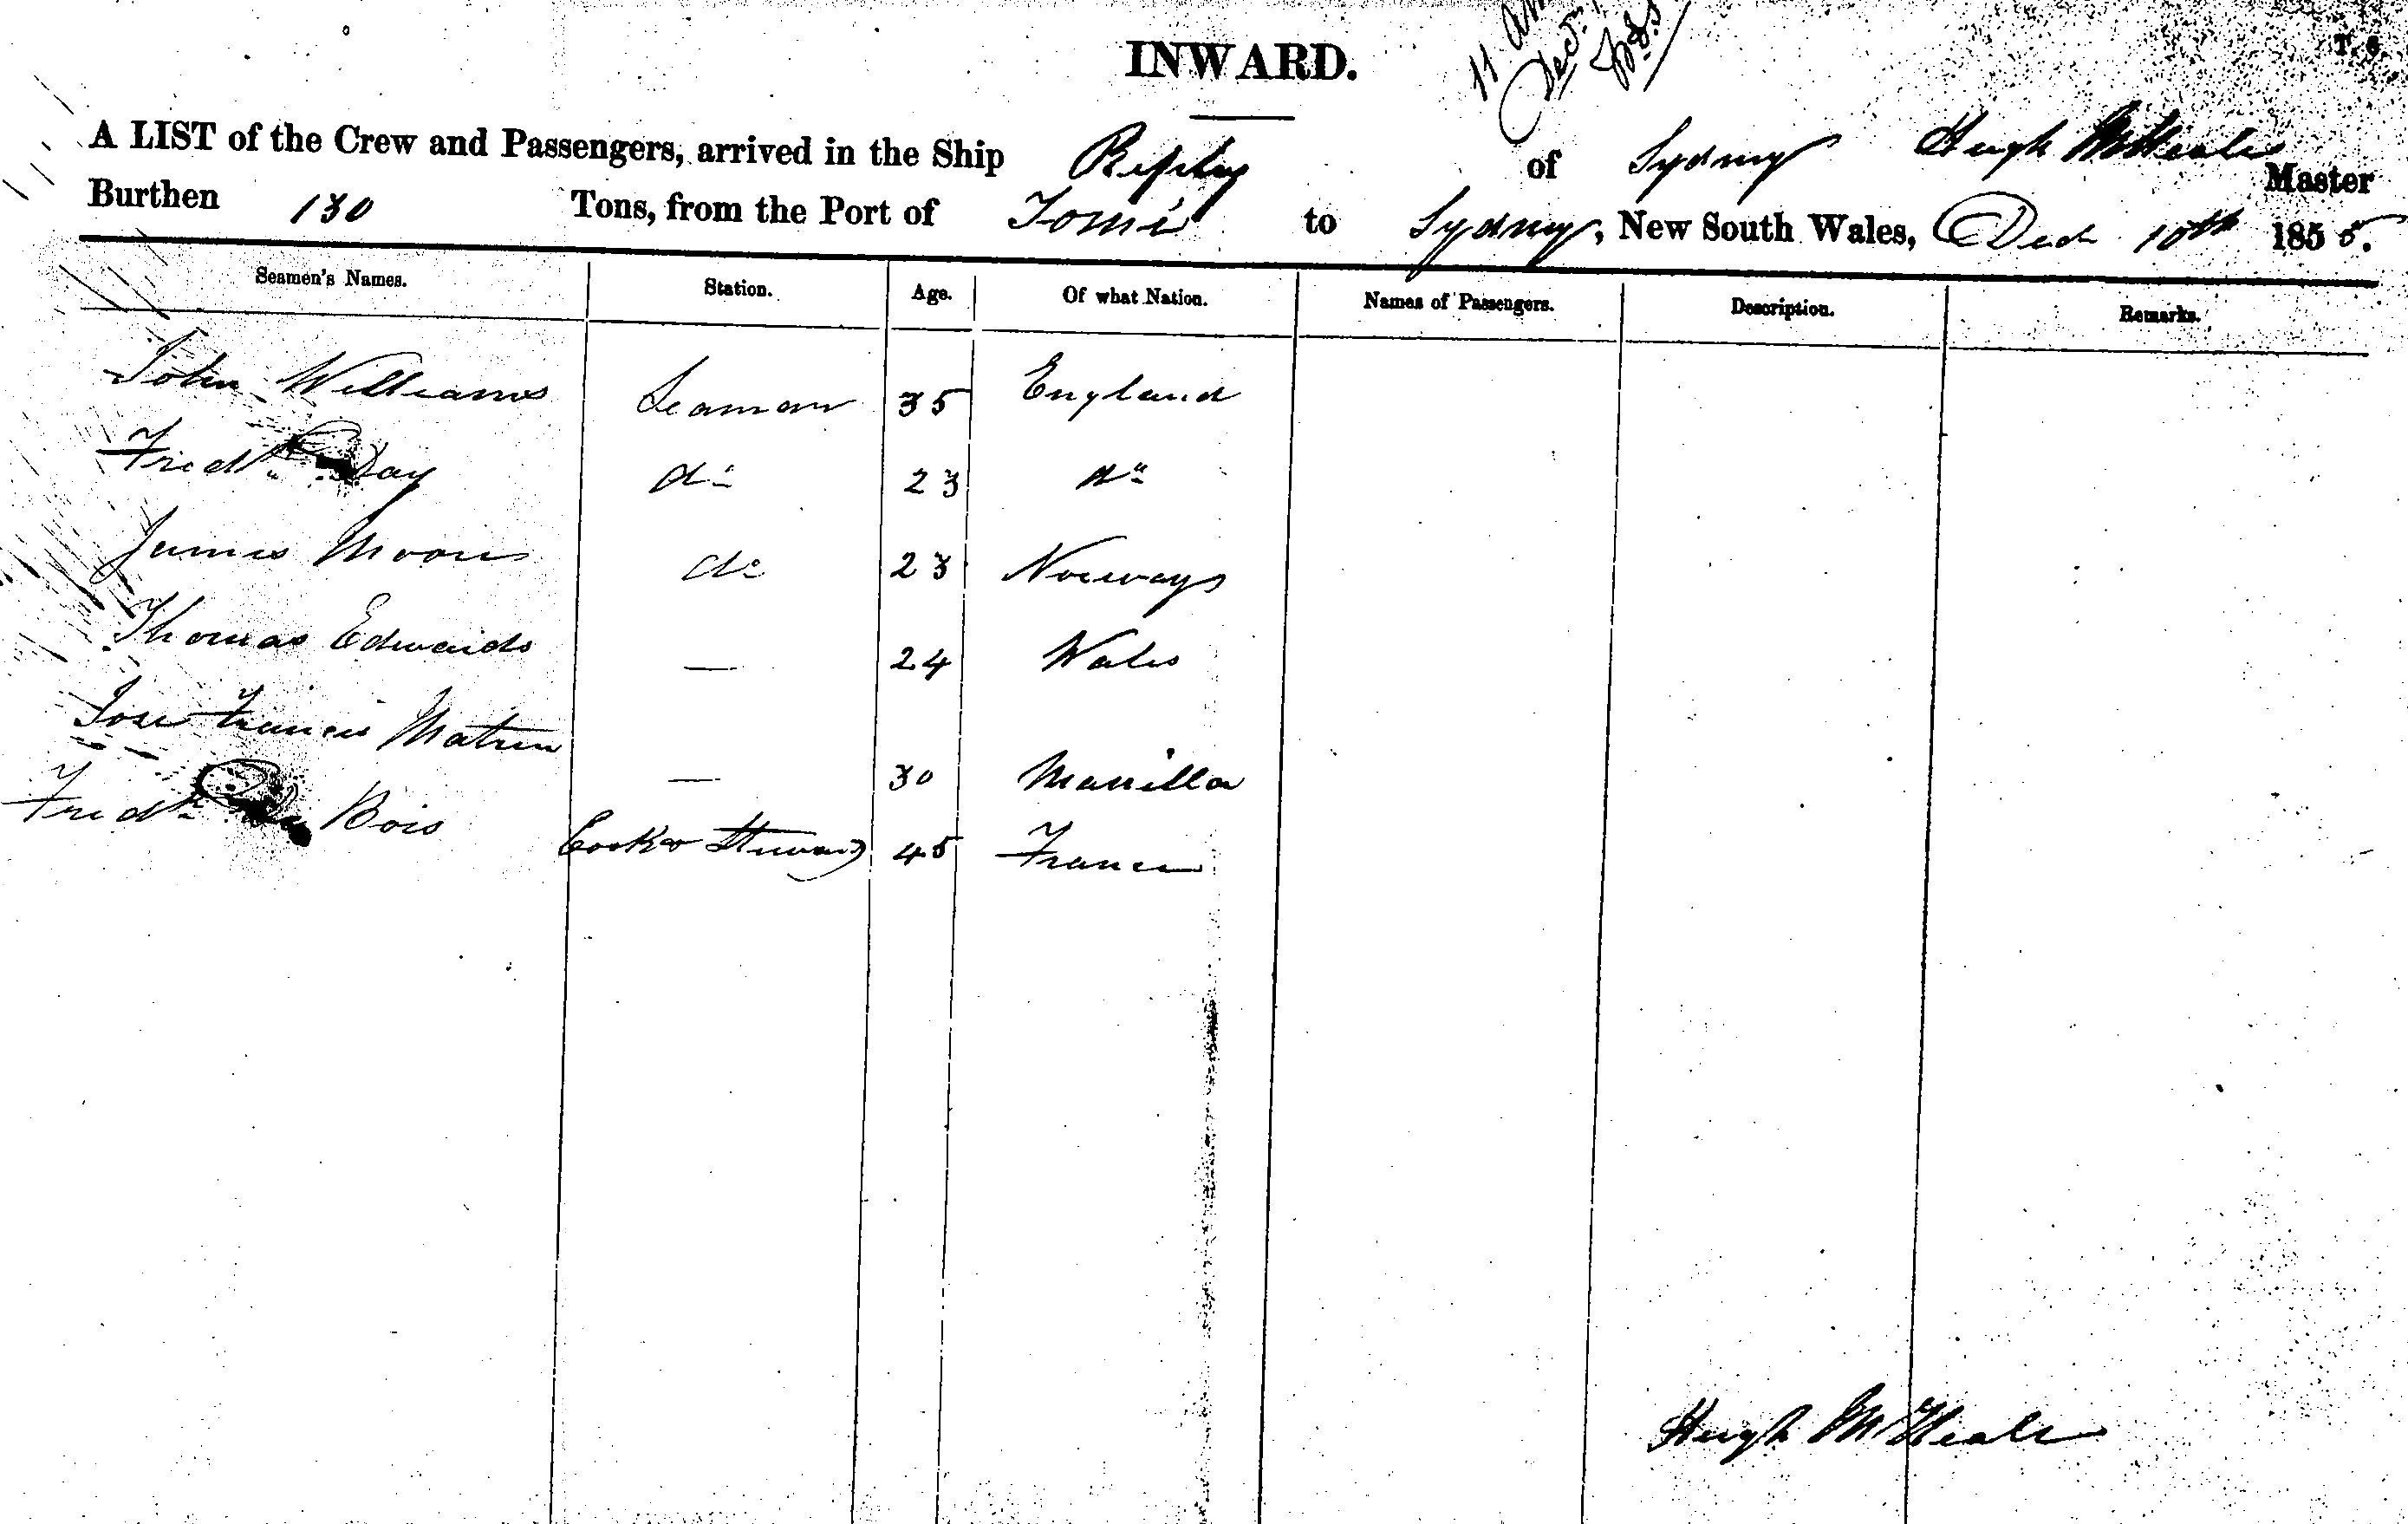 INWARD.
11 AM
T. 6.
A LIST of the Crew and Passengers, arrived in the Ship Ripley of Sydney Hugh McHeale Master
Burthen 130 Tons, from the Port of Tomé to Sydney, New South Wales, Decr 10th 1855.
Seamen's Names. Station. Age. Of what Nation. Names of Passengers. Description. Remarks.
John Williams Seaman 35 England
Fredk Day do 23 do
James Moore do 23 Norways
Thomas Edwards — 24 Wales
Jose Francis — 30 Manilla
Fredk Bois Cook & Steward 45 France
Hugh McHeale